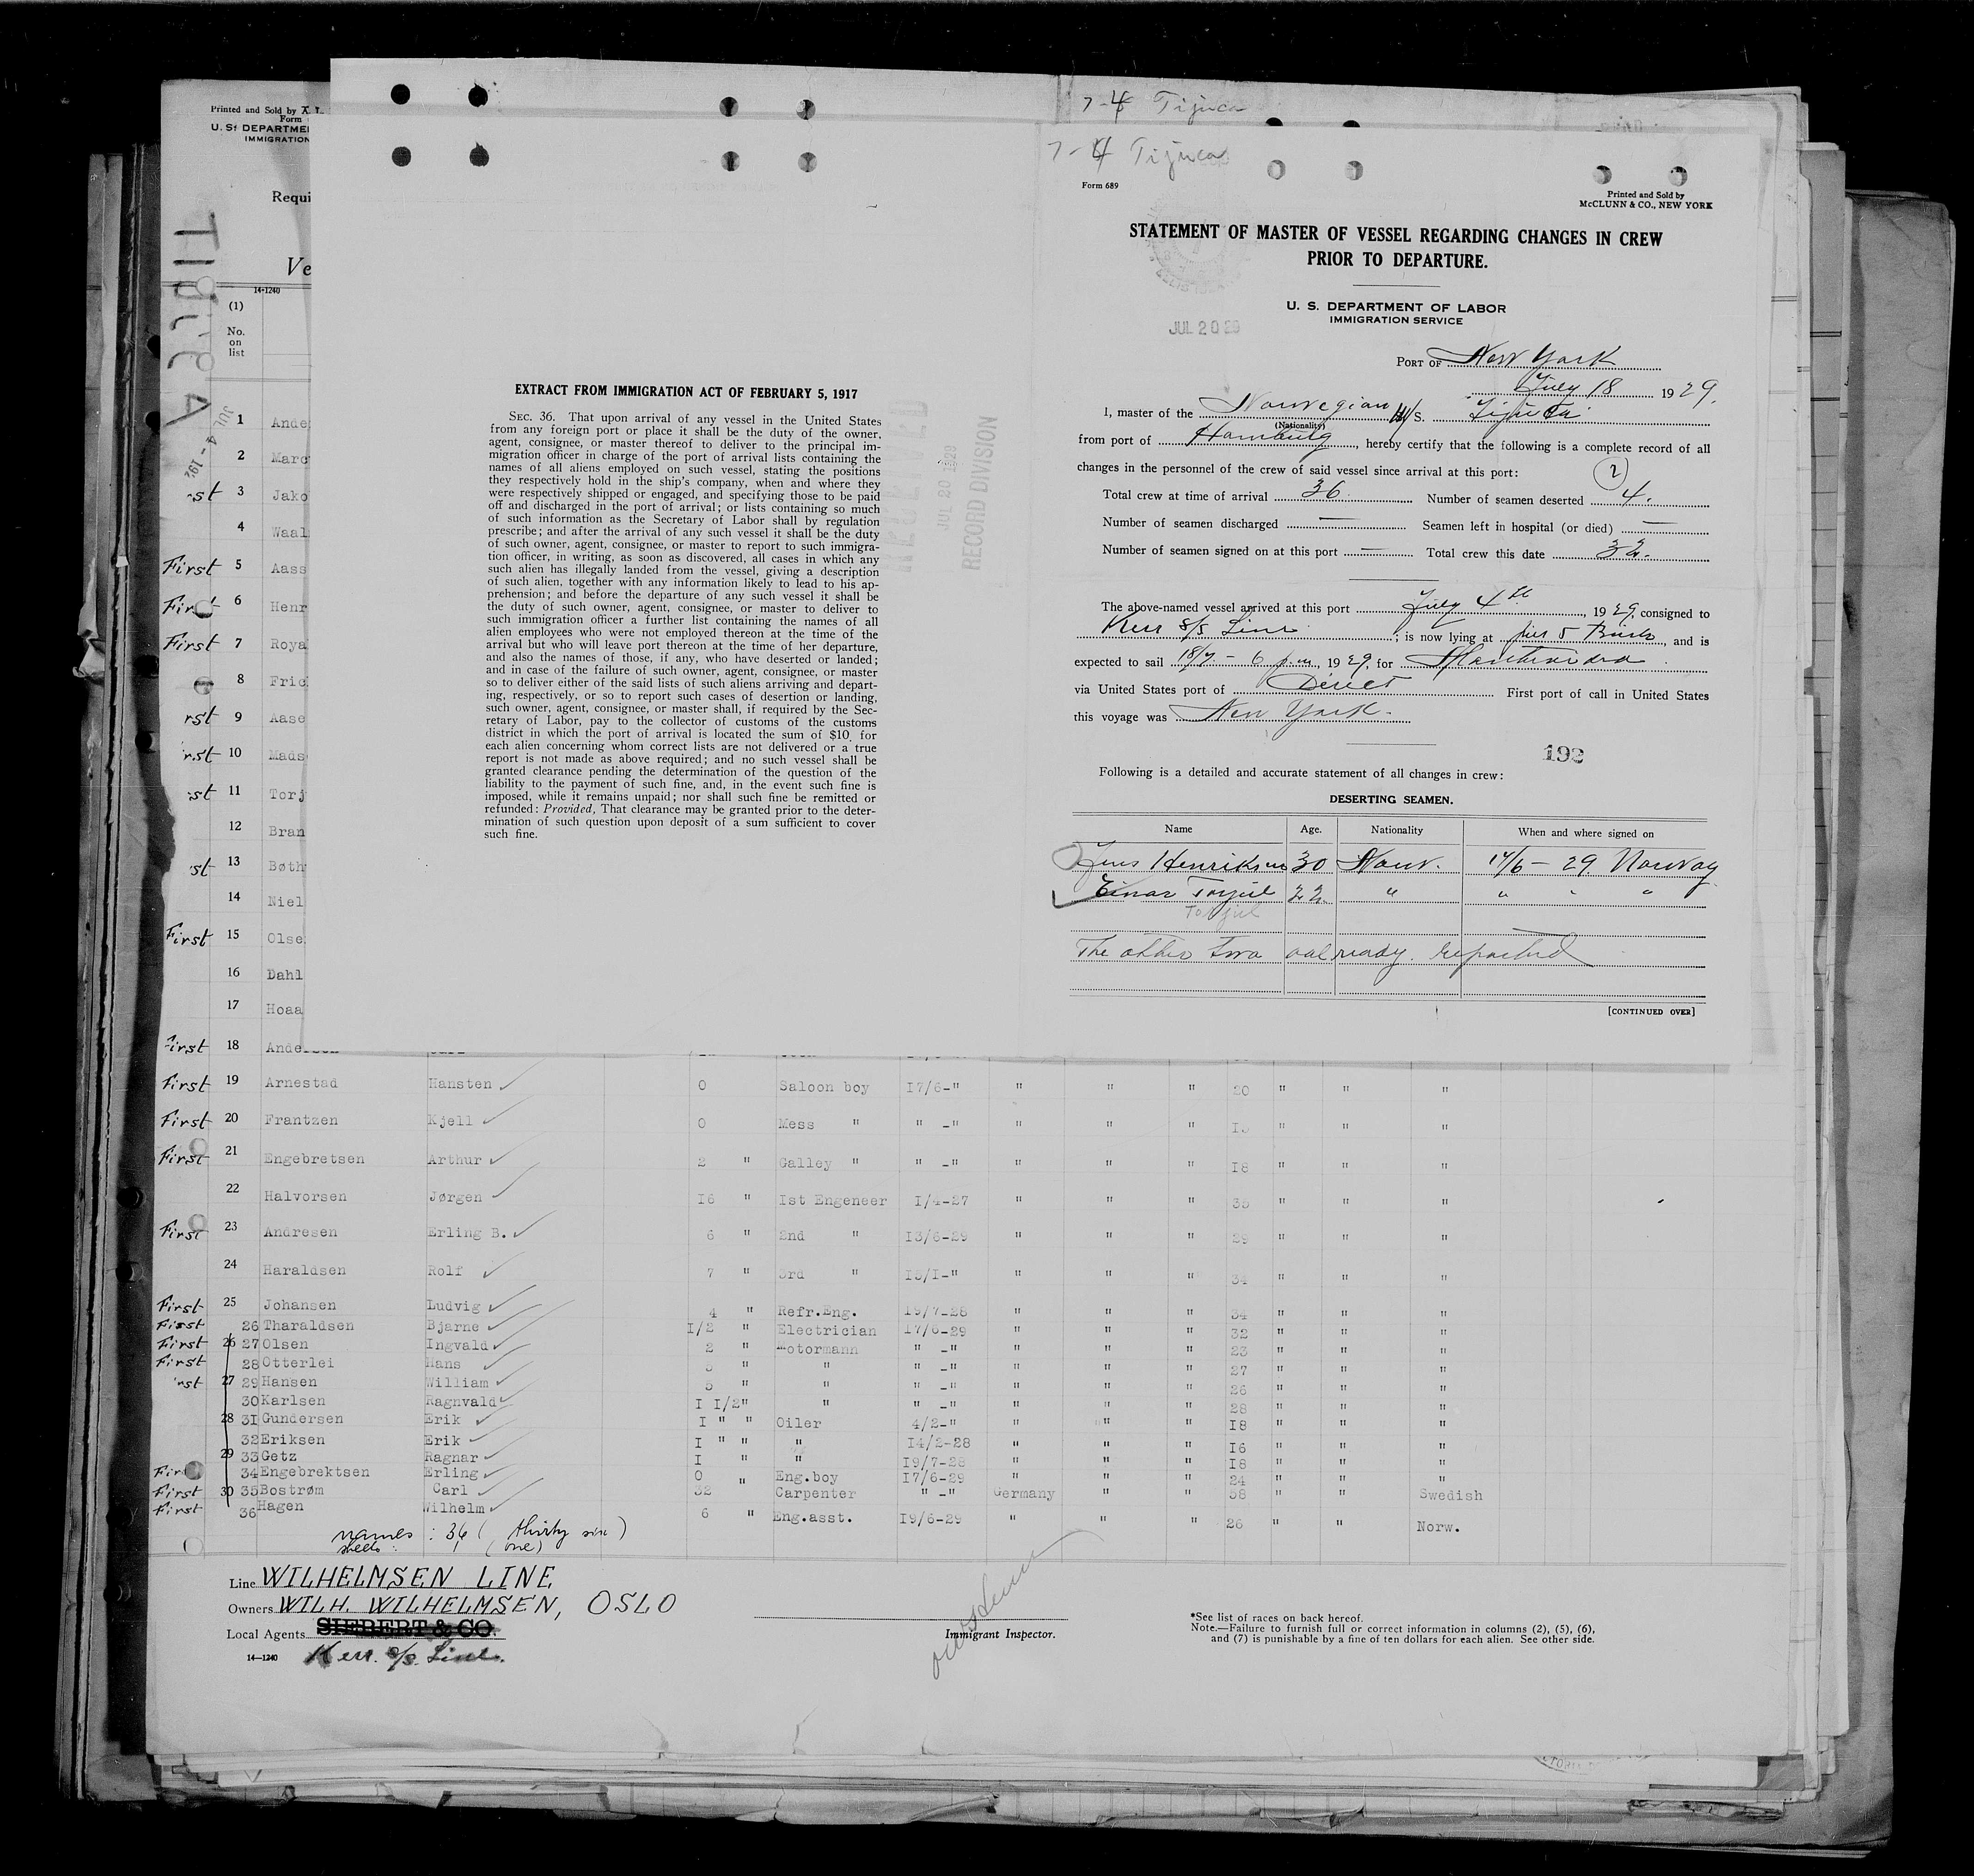 7-4 Tijuca
7-4 Tijuca
Form 689
Printed and Sold by
McCLUNN & CO., NEW YORK
STATEMENT OF MASTER OF VESSEL REGARDING CHANGES IN CREW
PRIOR TO DEPARTURE.
U. S. DEPARTMENT OF LABOR
IMMIGRATION SERVICE
JUL 20 29
PORT OF New York
July 18 1929.
I, master of the Norwegian M/S. Tijuca
(Nationality)
from port of Hamburg, hereby certify that the following is a complete record of all
changes in the personnel of the crew of said vessel since arrival at this port:
2
Total crew at time of arrival 36. Number of seamen deserted 4.
Number of seamen discharged — Seamen left in hospital (or died) —
Number of seamen signed on at this port — Total crew this date 32.
The above-named vessel arrived at this port July 4th, 1929, consigned to
Kerr S/S Line; is now lying at pier 5 Bush, and is
expected to sail 18/7 - 6 p.m., 1929, for Montevideo
via United States port of Direct First port of call in United States
this voyage was New York.
192
Following is a detailed and accurate statement of all changes in crew:
DESERTING SEAMEN.
Name Age. Nationality When and where signed on
Jens Henriksen 30 Norw. 17/6 - 29 Norway
Einar Torjul 22 " " " "
Torjul
The other two allready reported
[CONTINUED OVER]
EXTRACT FROM IMMIGRATION ACT OF FEBRUARY 5, 1917
SEC. 36. That upon arrival of any vessel in the United States
from any foreign port or place it shall be the duty of the owner,
agent, consignee, or master thereof to deliver to the principal im-
migration officer in charge of the port of arrival lists containing the
names of all aliens employed on such vessel, stating the positions
they respectively hold in the ship's company, when and where they
were respectively shipped or engaged, and specifying those to be paid
off and discharged in the port of arrival; or lists containing so much
of such information as the Secretary of Labor shall by regulation
prescribe; and after the arrival of any such vessel it shall be the duty
of such owner, agent, consignee, or master to report to such immigra-
tion officer, in writing, as soon as discovered, all cases in which any
such alien has illegally landed from the vessel, giving a description
of such alien, together with any information likely to lead to his ap-
prehension; and before the departure of any such vessel it shall be
the duty of such owner, agent, consignee, or master to deliver to
such immigration officer a further list containing the names of all
alien employees who were not employed thereon at the time of the
arrival but who will leave port thereon at the time of her departure,
and also the names of those, if any, who have deserted or landed;
and in case of the failure of such owner, agent, consignee, or master
so to deliver either of the said lists of such aliens arriving and depart-
ing, respectively, or so to report such cases of desertion or landing,
such owner, agent, consignee, or master shall, if required by the Sec-
retary of Labor, pay to the collector of customs of the customs
district in which the port of arrival is located the sum of $10 for
each alien concerning whom correct lists are not delivered or a true
report is not made as above required; and no such vessel shall be
granted clearance pending the determination of the question of the
liability to the payment of such fine, and, in the event such fine is
imposed, while it remains unpaid; nor shall such fine be remitted or
refunded: Provided, That clearance may be granted prior to the deter-
mination of such question upon deposit of a sum sufficient to cover
such fine.
RECEIVED
JUL 20 1929
RECORD DIVISION
Printed and Sold by
Form
U. S. DEPARTME
IMMIGRATION
Requi
Ve
14-1240
TIJUCA
JUL 4 - 192
(1)
No.
on
list
1 Ande
2 Marc
st 3 Jako
4 Waal
First 5 Aass
First 6 Henr
First 7 Roya
8 Fric
rst 9 Aase
rst 10 Mads
st 11 Torj
12 Bran
st 13 Bøth
14 Niel
First 15 Olse
16 Dahl
17 Hoaa
First 18 Ande
First 19 Arnestad Hansten 0 Saloon boy 17/6-" " " " 20 " " "
First 20 Frantzen Kjell 0 Mess " " -" " " " " " "
First 21 Engebretsen Arthur 2 " Galley " " -" " " " 18 " " "
22 Halvorsen Jørgen 16 " 1st Engeneer 1/4-27 " " " 35 " " "
First 23 Andresen Erling B. 6 " 2nd " 13/6-29 " " " 29 " " "
24 Haraldsen Rolf 7 " 3rd " 15/1-" " " " 34 " " "
First 25 Johansen Ludvig 4 " Refr.Eng. 19/7-28 " " " 34 " " "
First 26 Tharaldsen Bjarne 1/2 " Electrician 17/6-29 " " " 32 " " "
First 26 27 Olsen Ingvald 2 " Motormann " -" " " " 23 " " "
First 28 Otterlei Hans 3 " " " -" " " " 27 " " "
rst 27 29 Hansen William 5 " " " -" " " " 26 " " "
30 Karlsen Ragnvald 1 1/2" " " -" " " " 28 " " "
28 31 Gundersen Erik 1 " " Oiler 4/2-" " " " 18 " " "
32 Eriksen Erik 1 " " " 14/2-28 " " " 16 " " "
29 33 Getz Ragnar 1 " " 19/7-28 " " " 18 " " "
Firs 34 Engebrektsen Erling 0 " Eng.boy 17/6-29 " " " 24 " " "
First 30 35 Bostrøm Carl 32 Carpenter " -" Germany " " 58 " " Swedish
First 36 Hagen Wilhelm 6 " Eng.asst. 19/6-29 " " " 26 " " Norw.
names : 36 ( thirty six )
sheets : 1 (one)
Line WILHELMSEN LINE
Owners WILH. WILHELMSEN, OSLO
Local Agents SIEBERT & CO.
Kerr S/S. Line.
14—1240
Immigrant Inspector.
*See list of races on back hereof.
Note.—Failure to furnish full or correct information in columns (2), (5), (6),
and (7) is punishable by a fine of ten dollars for each alien. See other side.